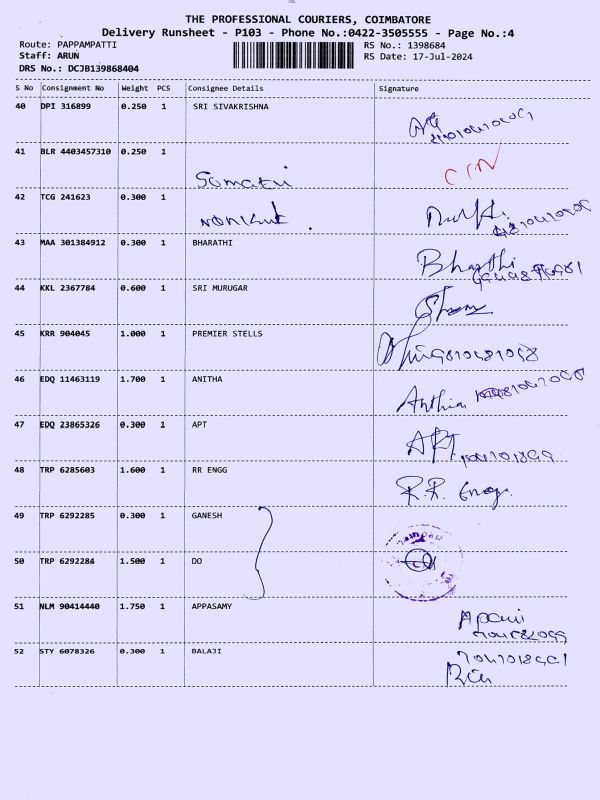 THE PROFESSIONAL COURIERS, COIMBATORE
Delivery Runsheet - P103 - Phone No.:0422-3505555 - Page No.:4
Route: PAPPAMPATTI RS No.: 1398684
Staff: ARUN RS Date: 17-Jul-2024
DRS No.: DCJB139868404
S No Consignment No Weight PCS Consignee Details Signature
40 DPI 316899 0.250 1 SRI SIVAKRISHNA
41 BLR 4403457310 0.250 1
42 TCG 241623 0.300 1
43 MAA 301384912 0.300 1 BHARATHI Bharthi
44 KKL 2367784 0.600 1 SRI MURUGAR
45 KRR 904045 1.000 1 PREMIER STELLS
46 EDQ 11463119 1.700 1 ANITHA
47 EDQ 23865326 0.300 1 APT APT
48 TRP 6285603 1.600 1 RR ENGG R.R. Engg.
49 TRP 6292285 0.300 1 GANESH
50 TRP 6292284 1.500 1 DO
51 NLM 90414440 1.750 1 APPASAMY
52 STY 6078326 0.300 1 BALAJI